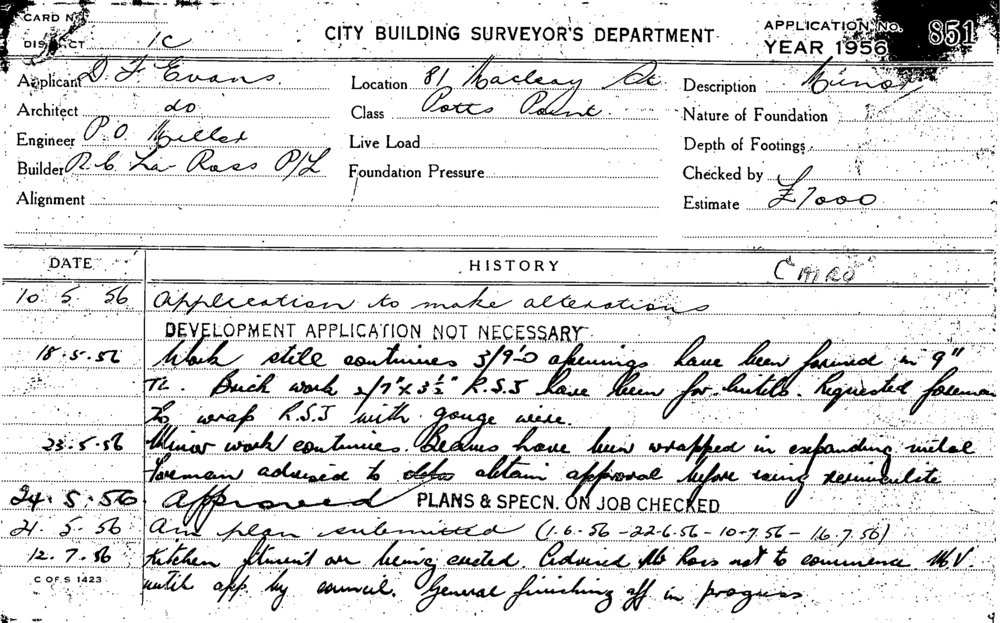 CARD No.
DISTRICT 1C
CITY BUILDING SURVEYOR'S DEPARTMENT
APPLICATION No. 851
YEAR 1956
Applicant D F Evans.
Location 81 Macleay St
Description Minor
Architect do
Class Potts Point.
Nature of Foundation
Engineer P.O. Miller
Live Load
Depth of Footings
Builder R.C. La Ross P/L
Foundation Pressure
Checked by
Alignment
Estimate £7000
DATE
HISTORY
CAIRO
10 5 56 Application to make alterations
DEVELOPMENT APPLICATION NOT NECESSARY
18.5.56 Work still continues 3/9'-0 openings have been formed in 9"
Brick work 2/7"x3½" R.S.J have been for lintels. Requested foreman
to wrap R.S.J with gouge wire.
23.5.56 Minor work continues. Beams have been wrapped in expanding metal
Foreman advised to obtain approval before using vermiculite
24.5.56 Approved PLANS & SPECN. ON JOB CHECKED
5 56 plan submitted (1.6.56 - 22.6.56 - 10.7.56 - 16.7.56)
12.7.56 Kitchen being erected. Advised Mr Ross not to commence M.V.
until app by council. General finishing off in progress
C OF S 1423